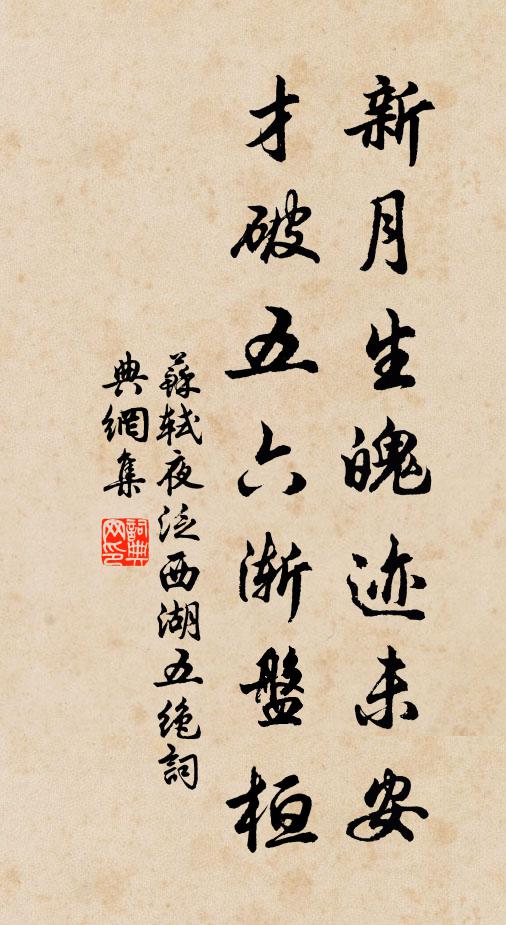 新月生魄迹未安
才破五六渐盤桓
蘇軾夜泛西湖五绝詞
典網集
詞典网印